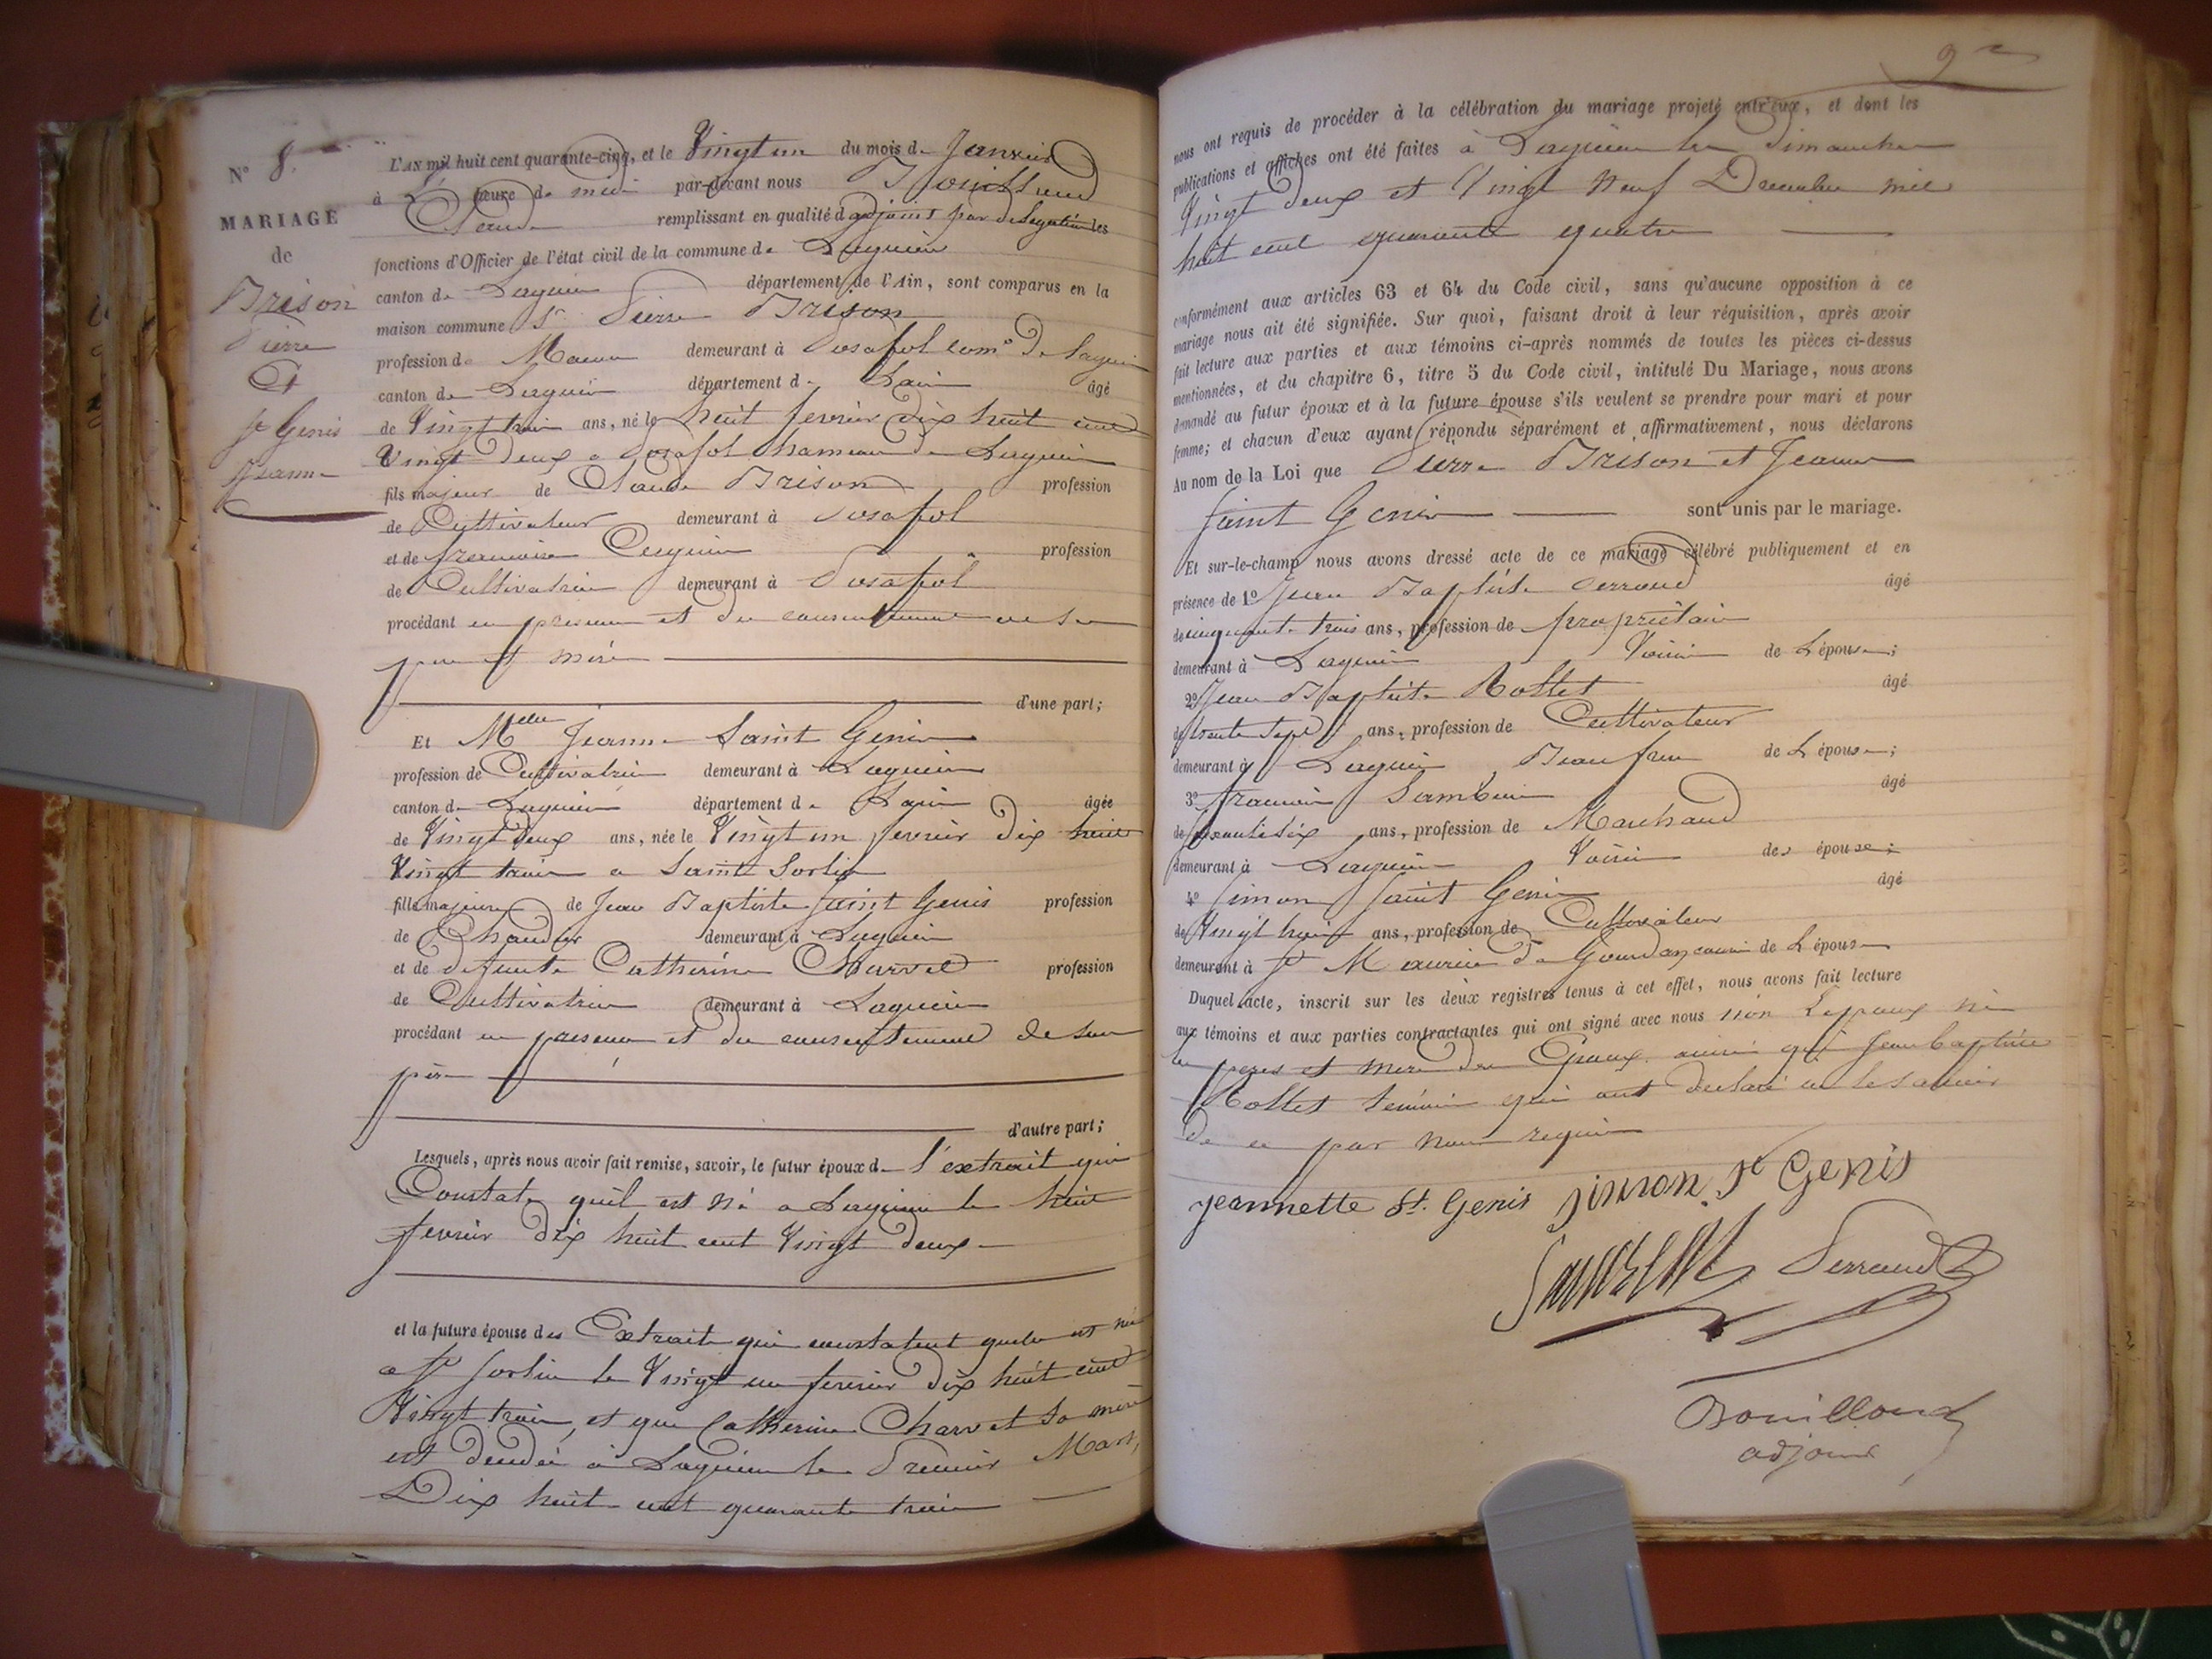 N° 8.
MARIAGE
de
Brison
Pierre
Et
St Genis
Jeanne
L'AN mil huit cent quarante-cinq, et le Vingt un du mois de Janvier
à heure de midi par-devant nous Bouilloud
Claude remplissant en qualité d'adjoint par delegation les
fonctions d'Officier de l'état civil de la commune de Lagnieu
canton de Lagnieu département de l'Ain, sont comparus en la
maison commune Sr Pierre Brison
profession de Macon demeurant à Posafol com° de Lagnieu
canton de Lagnieu département de Lain âgé
de Vingt trois ans, né le huit fevrier dix huit cent
Vingt deux a Posafol hameau de Lagnieu
fils majeur de Claude Brison profession
de Cultivateur demeurant à Posafol
et de francoise Cugnin profession
de Cultivatrice demeurant à Posafol
procédant en presence et du consentement de ses
pere et mere
d'une part;
Et Melle Jeanne Saint Genis
profession de Cultivatrice demeurant à Lagnieu
canton de Lagnieu département de Lain âgée
de Vingt deux ans, née le Vingt un fevrier dix huit
Vingt trois a Saint Sorlin
fille majeure de Jean Baptiste Saint Genis profession
de demeurant à Lagnieu
et de defunte Catherine Charvet profession
de Cultivatrice demeurant à Lagnieu
procédant en presence et du consentement de son
père
d'autre part;
Lesquels, après nous avoir fait remise, savoir, le futur époux de l'extrait qui
Constate qu'il est né a Lagnieu le huit
fevrier dix huit cent Vingt deux
et la future épouse des Extraits qui constatent quelle est née
a St Sorlin le Vingt un fevrier dix huit cent
Vingt trois, et que Catherine Charvet sa mere
est décédée à Lagnieu le Premier Mars
Dix huit cent quarante trois
9
nous ont requis de procéder à la célébration du mariage projeté entr'eux, et dont les
publications et affiches ont été faites à Lagnieu les dimanches
Vingt deux et Vingt Neuf Decembre mil
huit cent quarante quatre
conformément aux articles 63 et 64 du Code civil, sans qu'aucune opposition à ce
mariage nous ait été signifiée. Sur quoi, faisant droit à leur réquisition, après avoir
fait lecture aux parties et aux témoins ci-après nommés de toutes les pièces ci-dessus
mentionnées, et du chapitre 6, titre 5 du Code civil, intitulé Du Mariage, nous avons
demandé au futur époux et à la future épouse s'ils veulent se prendre pour mari et pour
femme; et chacun d'eux ayant répondu séparément et affirmativement, nous déclarons
Au nom de la Loi que Pierre Brison et Jeanne
Saint Genis sont unis par le mariage.
Et sur-le-champ nous avons dressé acte de ce mariage célébré publiquement et en
présence de 1° Jean Baptiste Perraud âgé
de cinquante trois ans, profession de propriétaire
demeurant à Lagnieu Voisin de L'épouse;
2° Jean Baptiste Rollet âgé
de trente sept ans, profession de Cultivateur
demeurant à Lagnieu Beau frere de L'épouse;
3° francois âgé
de ans, profession de Marchand
demeurant à Lagnieu Voisin des épouse;
4° Simon Saint Genis âgé
de Vingt huit ans, profession de Cultivateur
demeurant à St Maurice de Gourdan cousin de L'épouse
Duquel acte, inscrit sur les deux registres tenus à cet effet, nous avons fait lecture
aux témoins et aux parties contractantes qui ont signé avec nous non L'epoux ni
les peres et mere des Epoux ainsi que Jean baptiste
Rollet temoin qui ont declaré ne le savoir
de ce par nous requis
jeannette St. Genis simon St Genis
Perraud
Bouilloud
adjoint